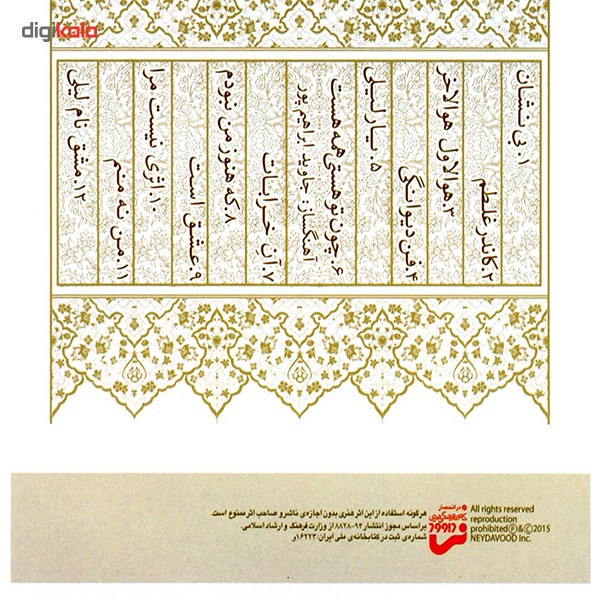 digikala
۱. بی نشان
۲. کاندر غلطم
۳. هوالاول هوالاخر
۴. فن دیوانگی
۵. یار لیلی
۶. چون تو هستی همه هست
آهنگساز: جاوید ابراهیم پور
۷. آن خرابات
۸. که هنوز من نبودم
۹. عشق است
۱۰. اثری نیست مرا
۱۱. من نه منم
۱۲. مشق نام لیلی
هرگونه استفاده از این اثر هنری بدون اجازه‌ی ناشر و صاحب اثر ممنوع است.
براساس مجوز انتشار ۹۴-۸۸۲۸ از وزارت فرهنگ و ارشاد اسلامی.
شماره‌ی ثبت در کتابخانه‌ی ملی ایران: ۱۶۲۲۳و
در انحصار
All rights reserved
reproduction
prohibited Ⓟ&Ⓒ2015
NEYDAVOOD Inc.